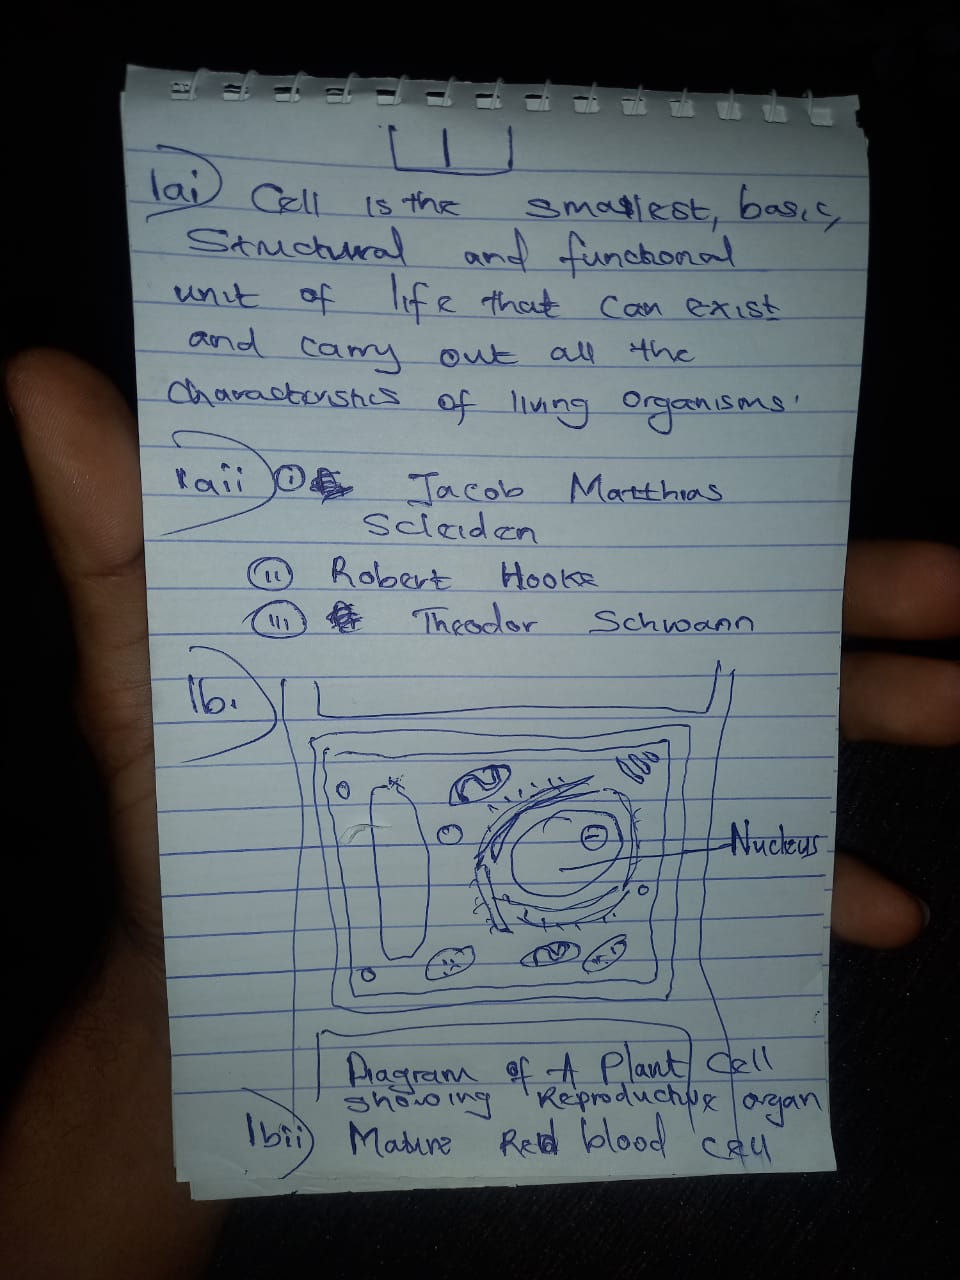 1
1ai) Cell is the smallest, basic,
Structural and functional
unit of life that can exist
and carry out all the
characteristics of living organisms.
1aii) (i) Jacob Matthias
Scleiden
(ii) Robert Hooke
(iii) Theodor Schwann
1b.
Nucleus
Diagram of A Plant Cell
showing Reproductive organ
1bii) Mature Red blood cell